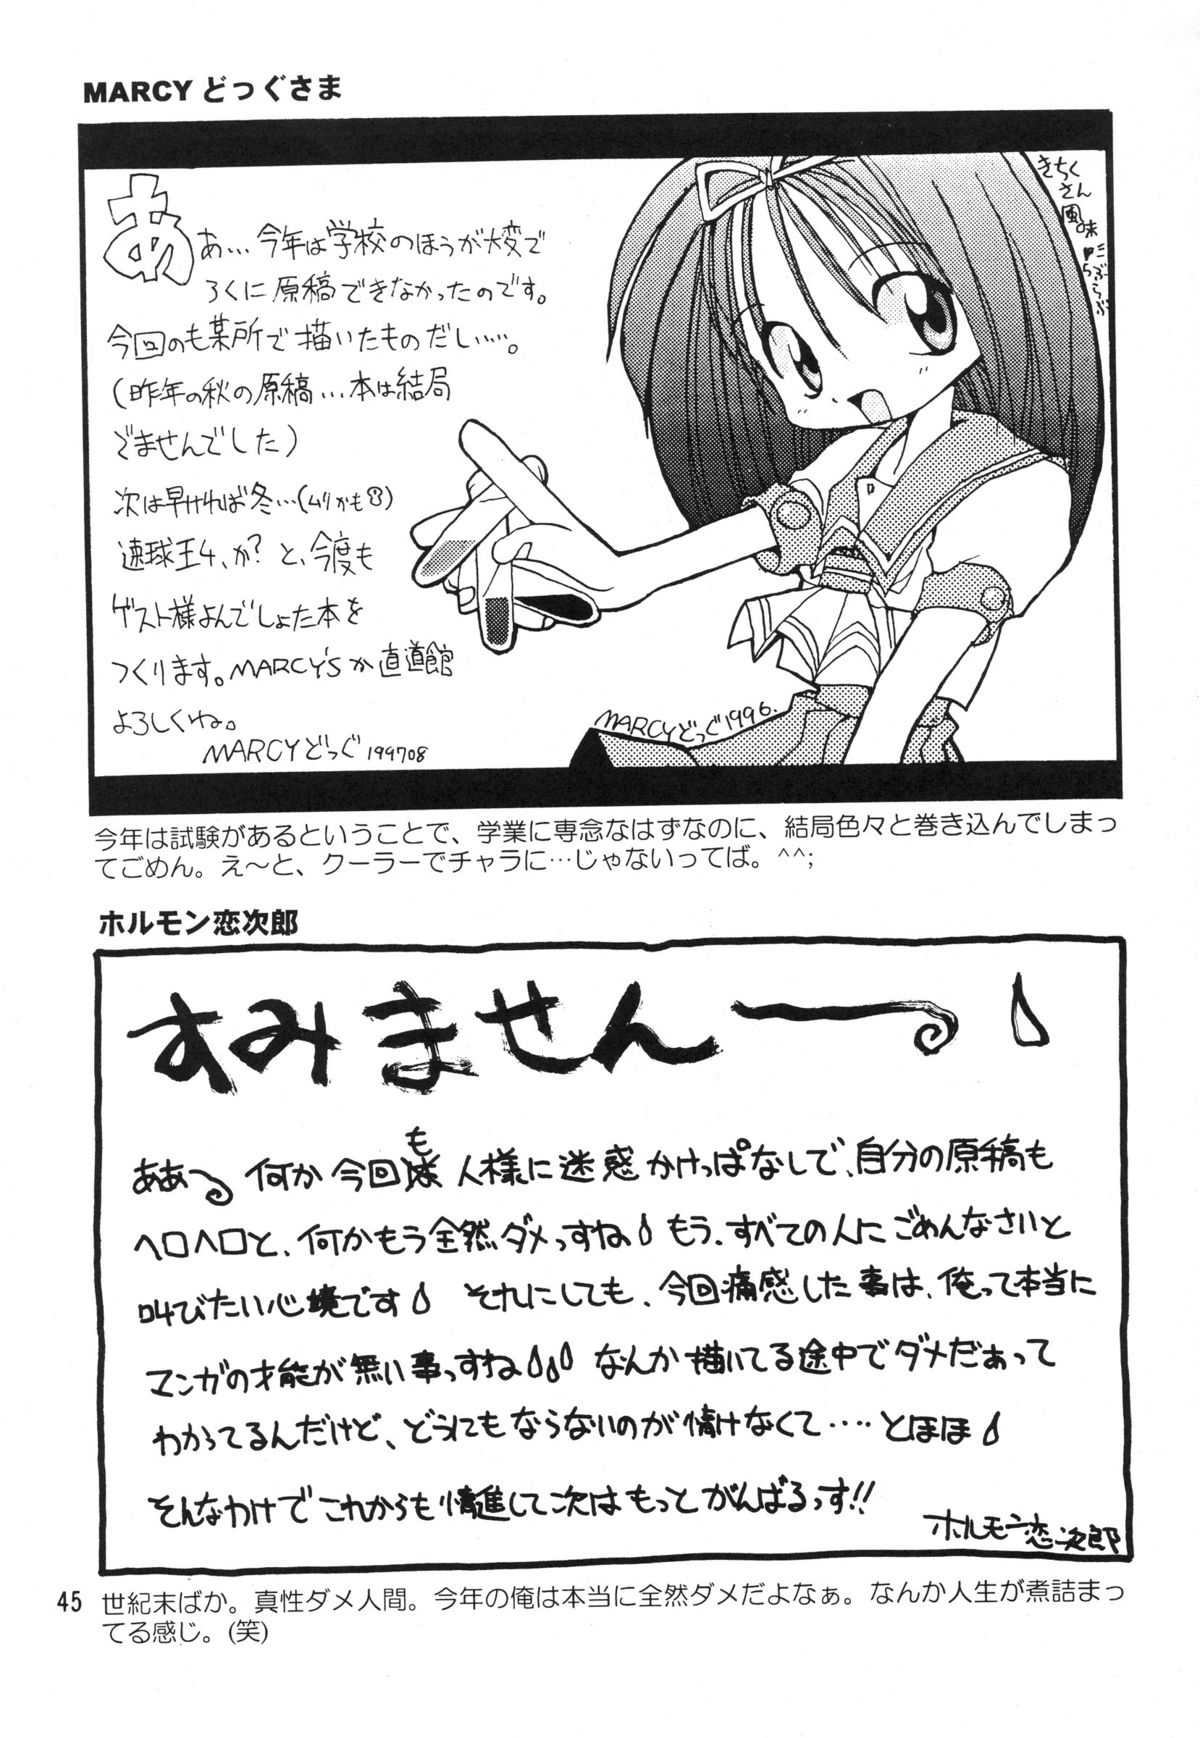 MARCYどっぐさま
あ
あ…今年は学校のほうが大変で
ろくに原稿できなかったのです。
今回のも某所で描いたものだし……。
(昨年の秋の原稿…本は結局
でませんでした)
次は早ければ冬…(ムリかも
速球王4、か?と、今度も
ゲスト様よんでしょた本を
つくります。MARCY'Sか直道館
よろしくね。
MARCYどっぐ 199708
きちく
さん
風味
♥ミ
らぶらぶ
MARCYどっぐ1996.
今年は試験があるということで、学業に専念なはずなのに、結局色々と巻き込んでしまっ
てごめん。え～と、クーラーでチャラに…じゃないってば。^^;
ホルモン恋次郎
すみませんー
ああ～何か今回も人様に迷惑かけっぱなしで、自分の原稿も
ヘロヘロと、何かもう全然ダメっすね もう、すべての人にごめんなさいと
叫びたい心境です それにしても、今回痛感した事は、俺って本当に
マンガの才能が無い事っすね なんか描いてる途中でダメだぁって
わかってるんだけど、どうにもならないのが情けなくて‥‥とほほ
そんなわけでこれからも精進して次はもっとがんばるっす!!
ホルモン恋次郎
45 世紀末ばか。真性ダメ人間。今年の俺は本当に全然ダメだよなぁ。なんか人生が煮詰まっ
てる感じ。(笑)